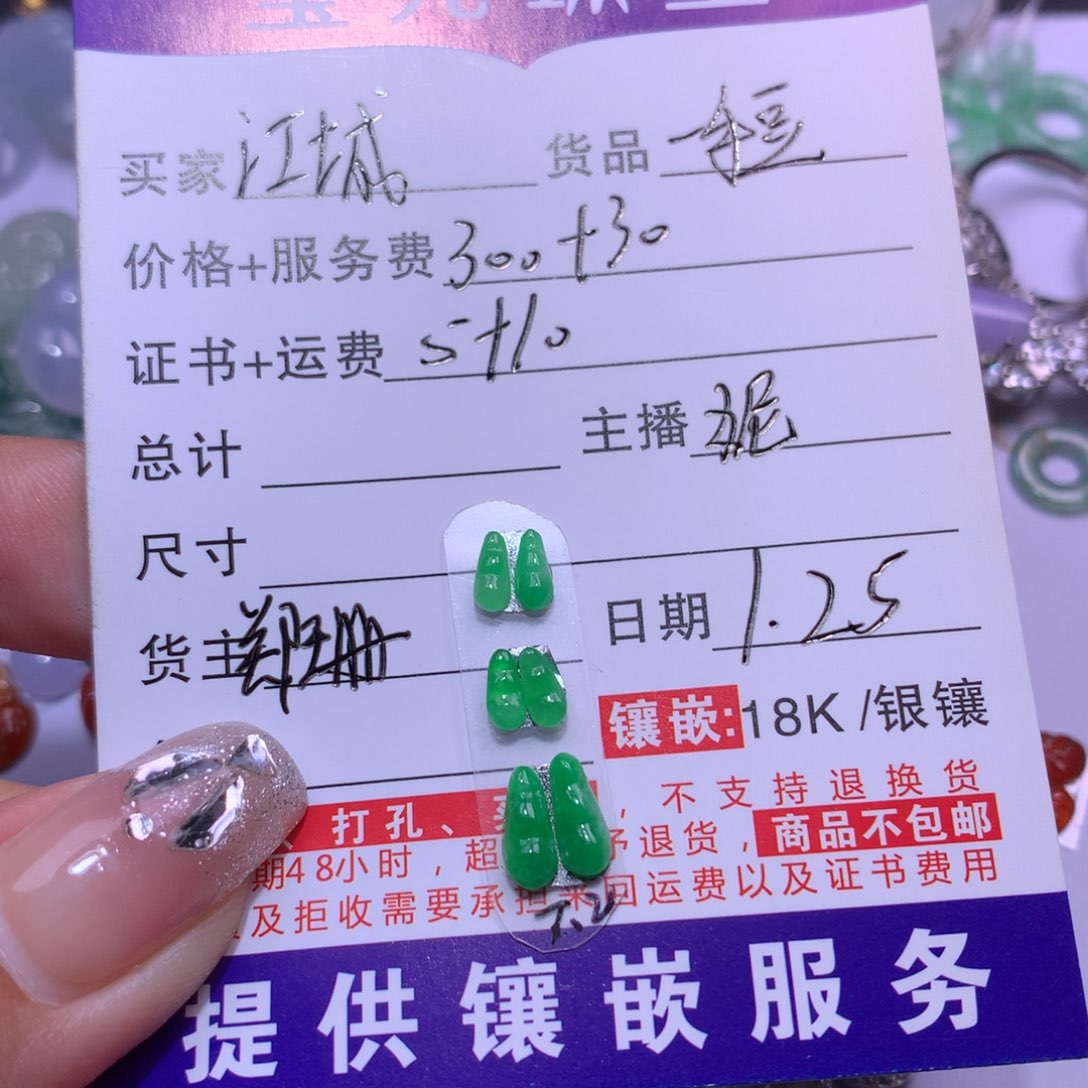 买家 江城 货品
价格+服务费 300+30
证书+运费 5+10
总计 主播
尺寸
货主 日期 1.25
镶嵌:18K/银镶
打孔、 ,不支持退换货
期48小时,超 予退货,商品不包邮
及拒收需要承担来回运费以及证书费用
提供镶嵌服务